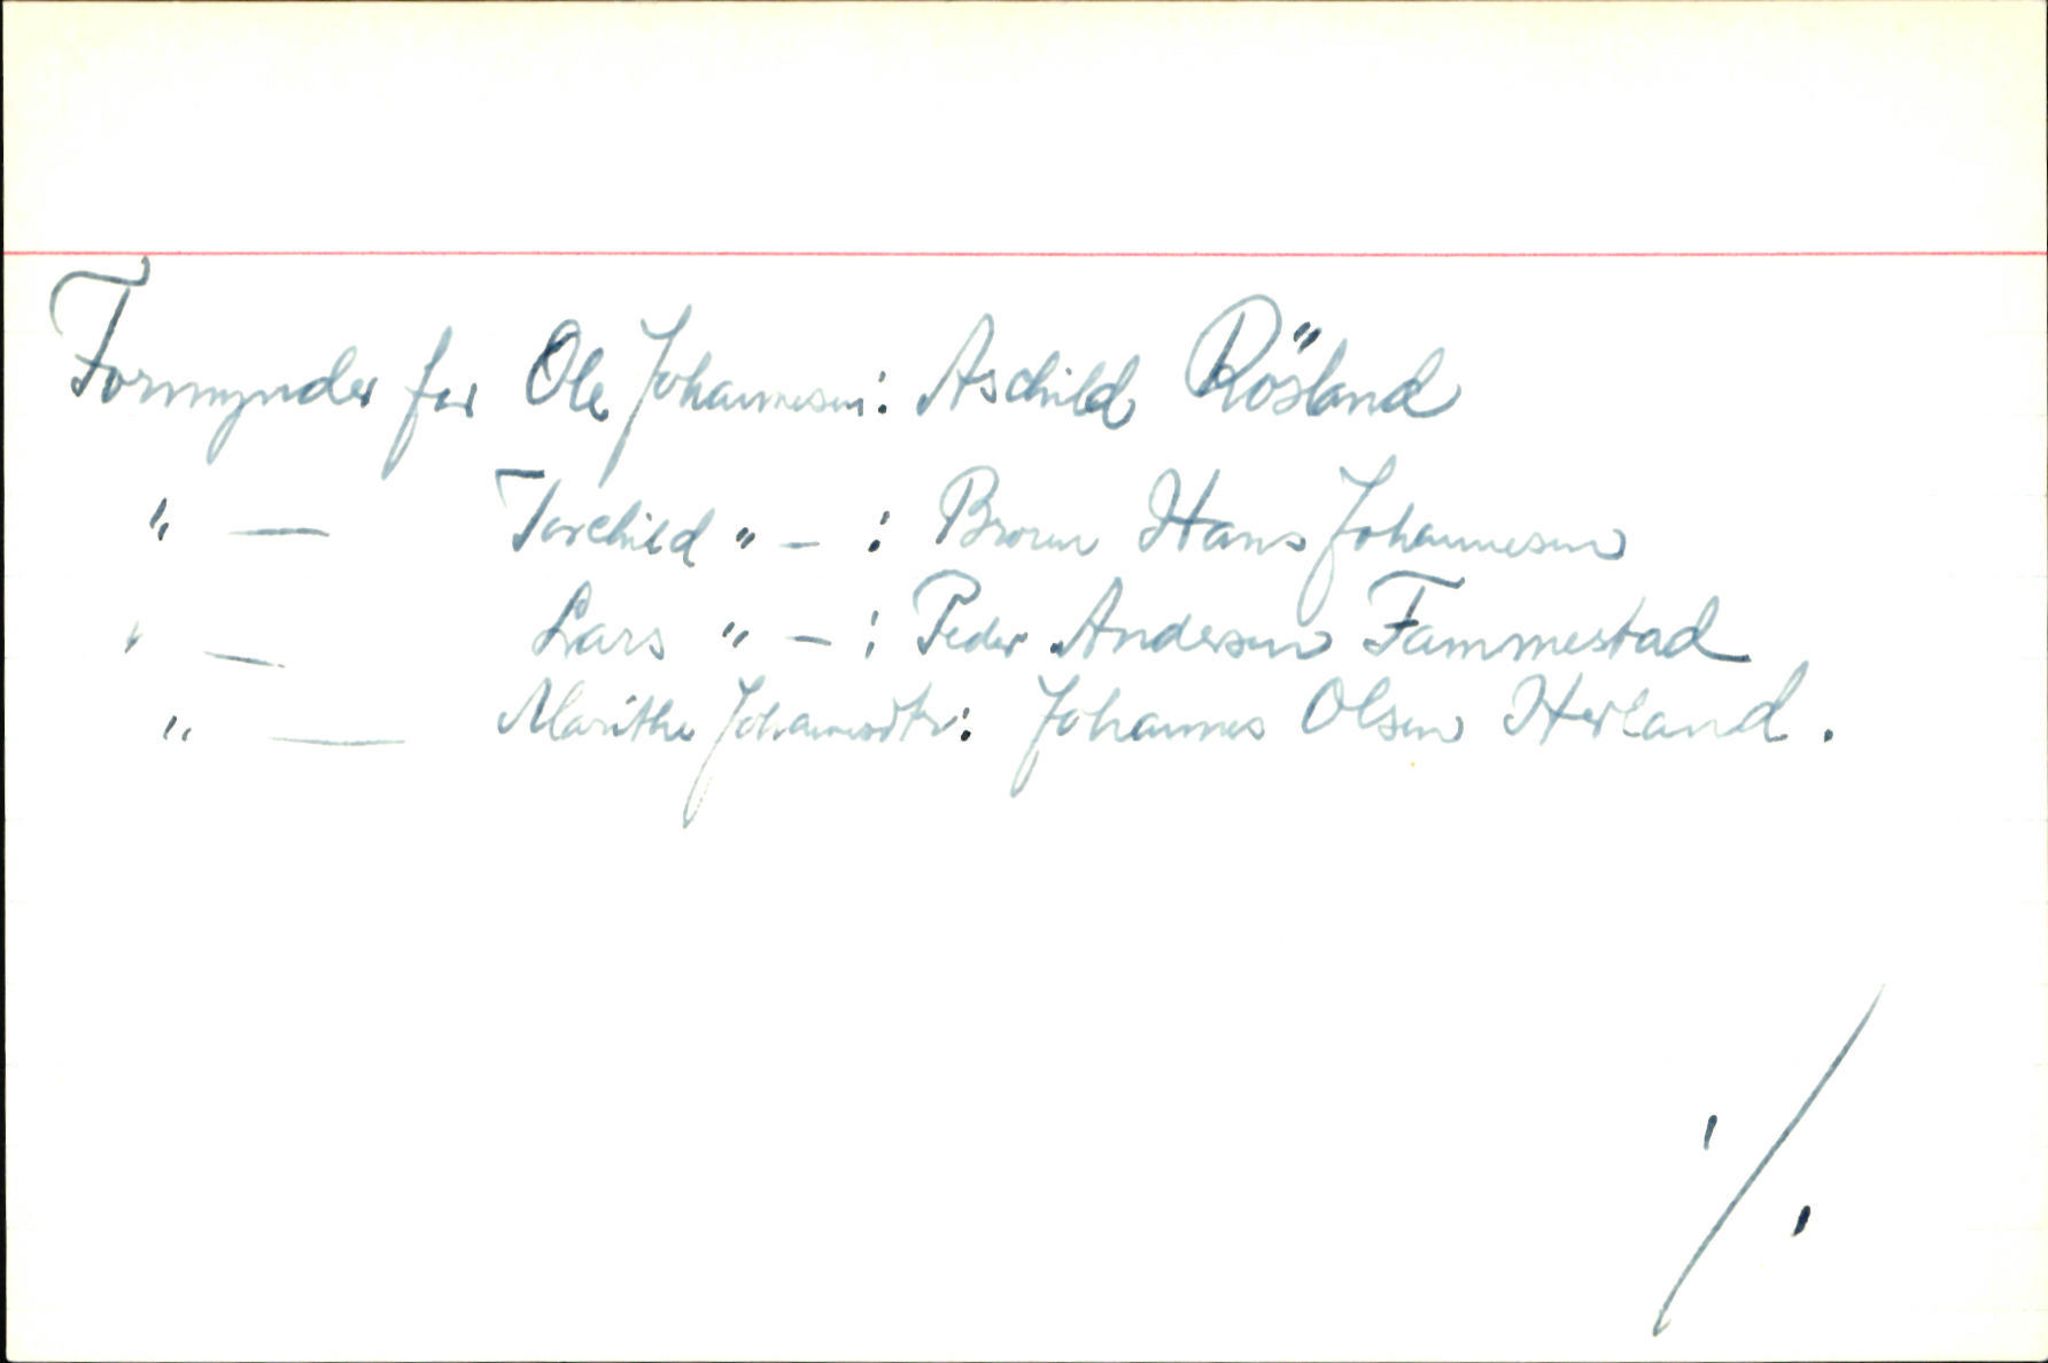 Formynder for Ole Johannesen: Aschild Rösland
" — Torchild " — : Broren Hans Johannesen
" — Lars " — : Peder Andersen Fammestad
" — Marithe Johannesdtr: Johannes Olsen Herland.
./.